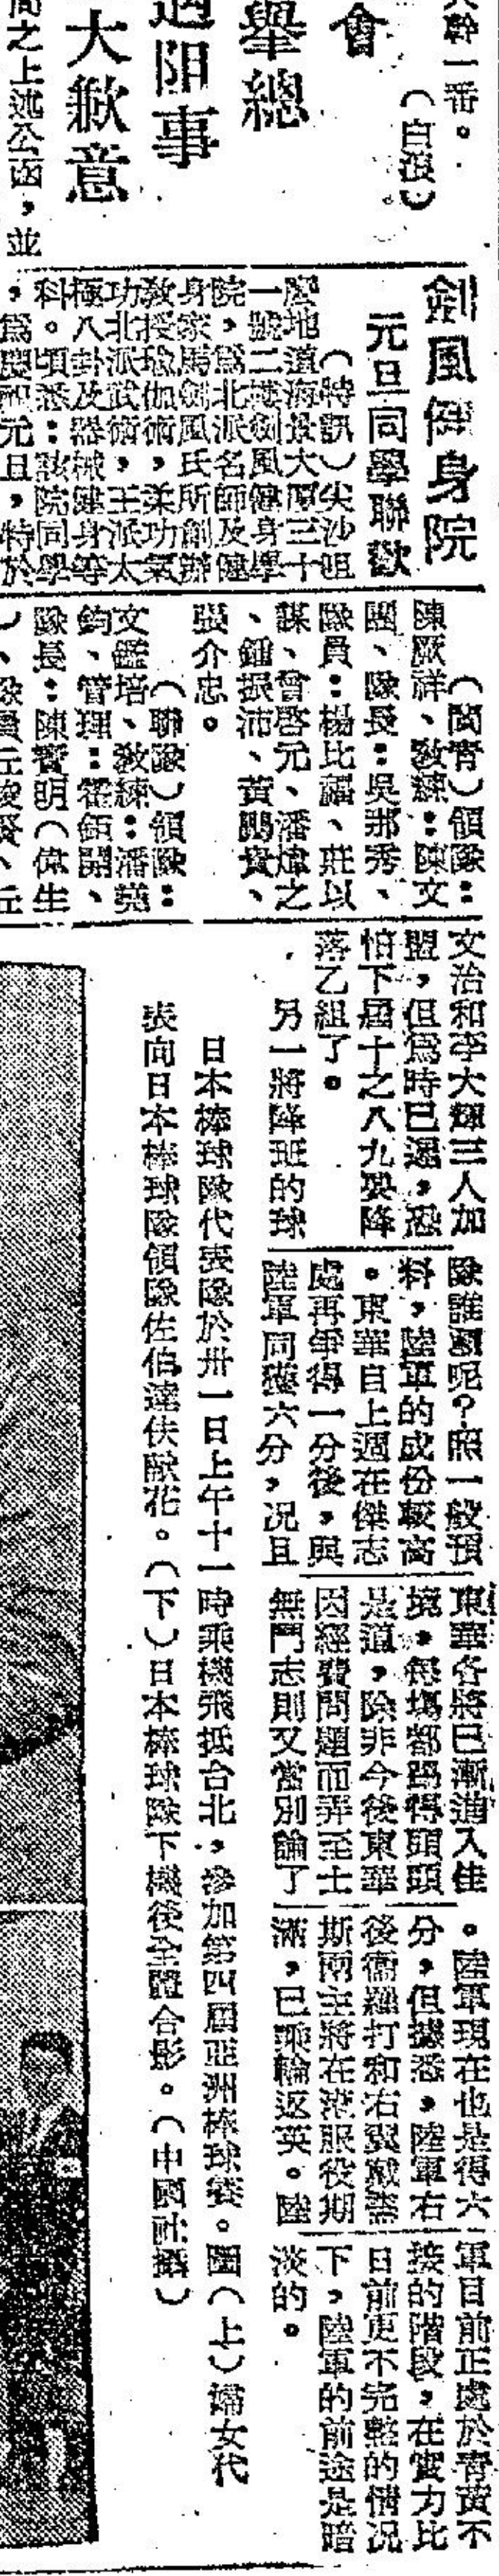 大幹一番。
（白浪）
會
舉總
過阻事
大歉意
間之上述公函，並
劍風健身院
元旦同學聯歡
（特訊）尖沙咀
麼地道海景大厦三十
一號二樓劍風健身學
院，爲北派名師及健
身家馬劍風氏所創辦
敎授瑜伽術，柔功氣
功北派武術，王派太
極八卦及器械健身等
科。頃悉：該院同學
，爲慶祝元旦，特於
（閩青）領隊：
陳厥祥、敎練：陳文
團、隊長：吳那秀、
隊員：楊比福、莊以
謀、曾啓元、潘煒之
、鍾振沛、黃鵬賓、
張介忠。
（聯隊）領隊：
文鑑培、敎練：潘堯
鈞、管理：霍鉅開、
隊長：陳寶明（偉生
）、隊員丘俊賢、丘
文治和李大輝三人加
盟，但爲時已遲，恐
怕下屆十之八九要降
落乙組了。
另一將降班的球
隊誰屬呢？照一般預
料，陸軍的成份較高
。東華自上週在傑志
處再爭得一分後，與
陸軍同獲六分，况且
東華各將已漸進入佳
境，每塲都踢得頭頭
是道，除非今後東華
因經費問題而弄至士
無鬥志則又當別論了
。陸軍現在也是得六
分，但據悉，陸軍右
後衞羅打和右翼戴蓋
斯兩主將在港服役期
滿，已乘輪返英。陸
軍目前正處於靑黃不
接的階段，在實力比
日前更不完整的情况
下，陸軍的前途是暗
淡的。
日本棒球隊代表隊於卅一日上午十一時乘機飛抵台北，參加第四屆亞洲棒球賽。圖（上）婦女代
表向日本棒球隊領隊佐伯達伕獻花。（下）日本棒球隊下機後全體合影。（中國社攝）